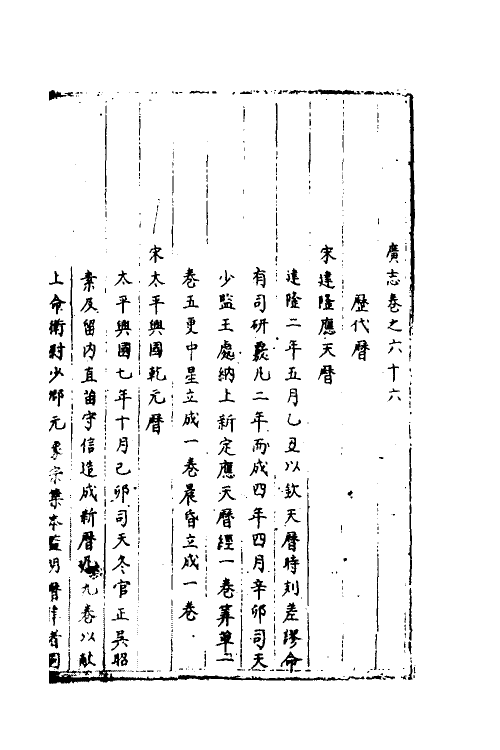 廣志卷之六十六
歷代曆
宋建隆應天曆
建隆二年五月乙丑以欽天曆時刻差繆命
有司研覈凡二年而成四年四月辛卯司天
少監王處納上新定應天曆經一卷筭草一
卷五更中星立成一卷晨昏立成一卷
宋太平興國乾元曆
太平興國七年十月己卯司天冬官正吳昭
素及留內直苗守信造成新曆九卷以献
上命衛尉少卿元象宗集本監明曆律者同